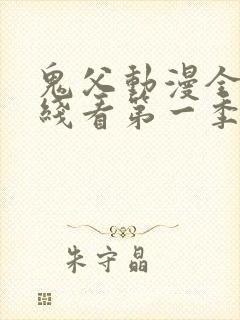 鬼父動漫全
綫看第一季
朱守晶